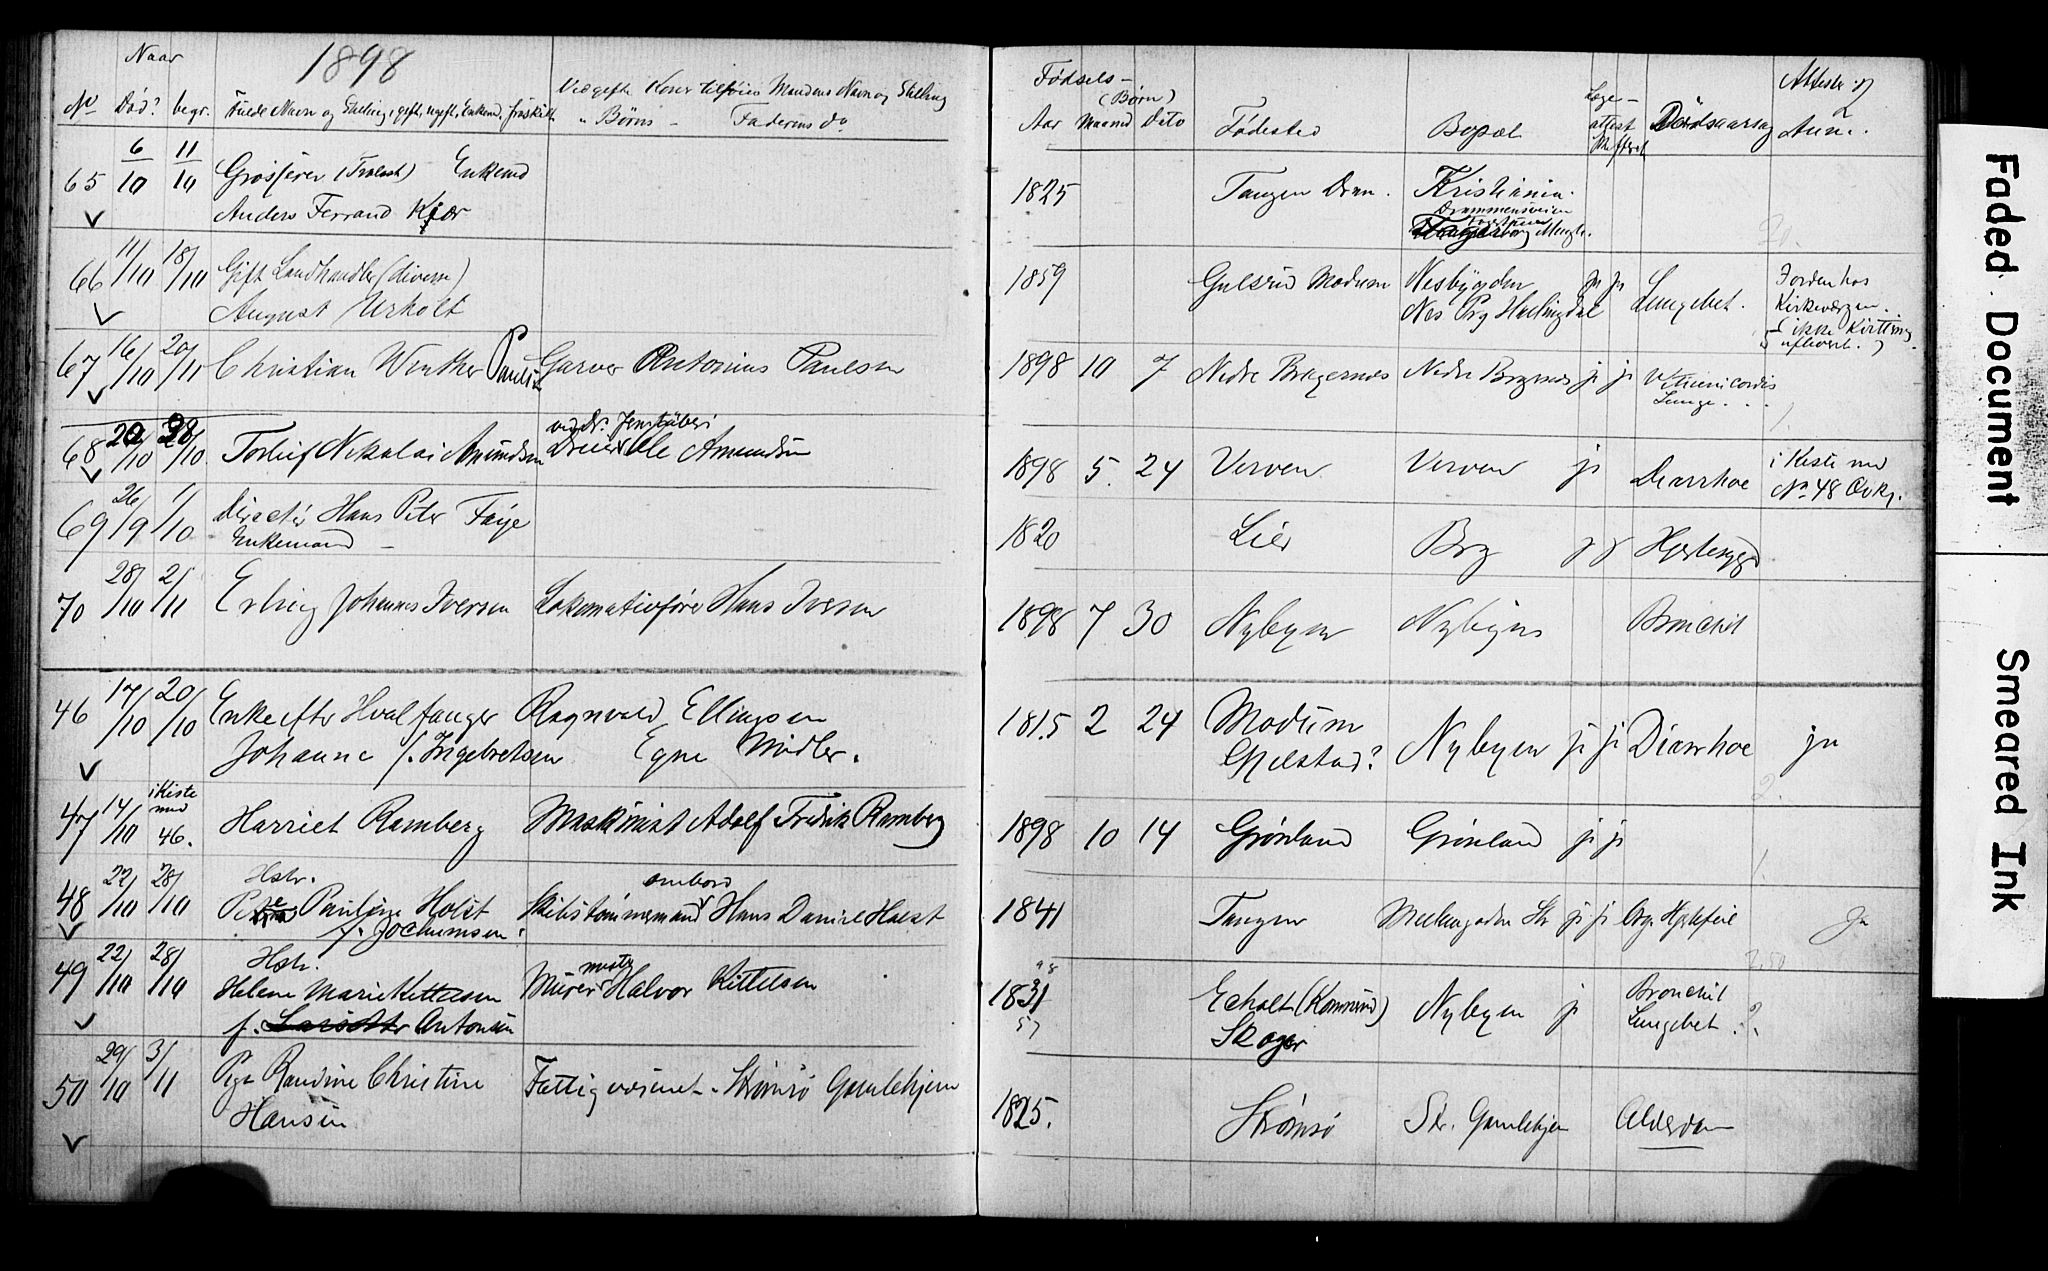 1898
Naar
No Død? begr. Fulde Navn og Stilling, gift, ugift, Enkem., fraskilt
Ved gifte Koner tilføies Mandens Navn og Stilling
" Børns - Faderens do
Fødsels-
(Børn)
Aar Maaned Dato Fødested Bopæl
Læge-
attest
Dødsaarsag Anm.
65 6/10 11/10 Grosserer (Trælast) Enkemd 1825 Tangen Dram. Kristiania.
Anders Ferrand Kiær Drammensveien
66 11/10 18/10 Gift Landhandler (diverse) 1859 Gulsrud Modum Nesbygden ja ja Lungebet. Jorden hos
August Urholt Nes Prg Hallingdal Kirkeværgen.
ikke Kvittring
67 16/10 20/11 Christian Winther Paulsen Garver Antonius Paulsen 1898 10 7 Nedre Bragernæs Nedre Bragernæs ja ja
Lunge.
68 20/10 28/10 Torleif Nikolai Amundsen Dreier Ole Amundsen 1898 5. 24 Verven Verven ja Diarrhoe i Kiste med
No 48
69 26/9 1/10 Directør Hans Peter Faye 1820 Lier Brg ja ja Hjertesyge
Enkemand -
70 28/10 2/11 Erling Johannes Iversen Lokomotivfører Hans Iversen 1898 7 30 Nybyen Nybyen Bronchit
46 17/10 20/10 Enke efter Hvalfanger Ragnvald Ellingsen 1815 2 24 Modum Nybyen ja ja Diarrhoe ja
Johanne f. Ingebretsen Egne Midler. Gjelstad?
47 14/10 i Kiste
med
46. Harriet Ramberg Maskinist Adolf Fredrik Ramberg 1898 10 14 Grønland Grønland ja ja
48 22/10 28/10 Hstr.
Pauline Holst Skibstømmermand ombord Hans Daniel Holst 1841 Tangen ja ja Org. Hjertefeil Ja
f. Jochumsen.
49 22/10 28/10 Hstr.
Helene Marie Kittelsen Murermester Halvor Kittelsen 1831 Echolt (Kommune) Nybyen ja Bronchit
f. Larsdtr Antonsen Skoger Lungebet.?
50 29/10 3/11 Pige Randine Christine Fattigvæsenet - Strømsø Gamlehjem 1825. Strømsø Str. Gamlehjem Alderdom
Hansen
Faded Document
Smeared Ink